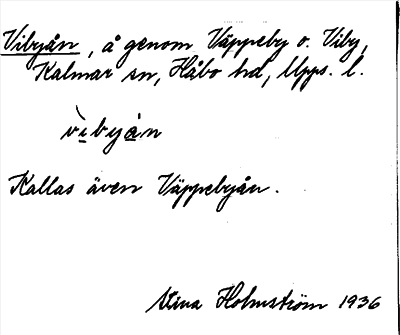 Vibyån, å genom Väppeby o. Viby,
Kalmar sn, Håbo hd, Upps. l.
vìbyån
Kallas även Väppebyån.
Stina Holmström 1936